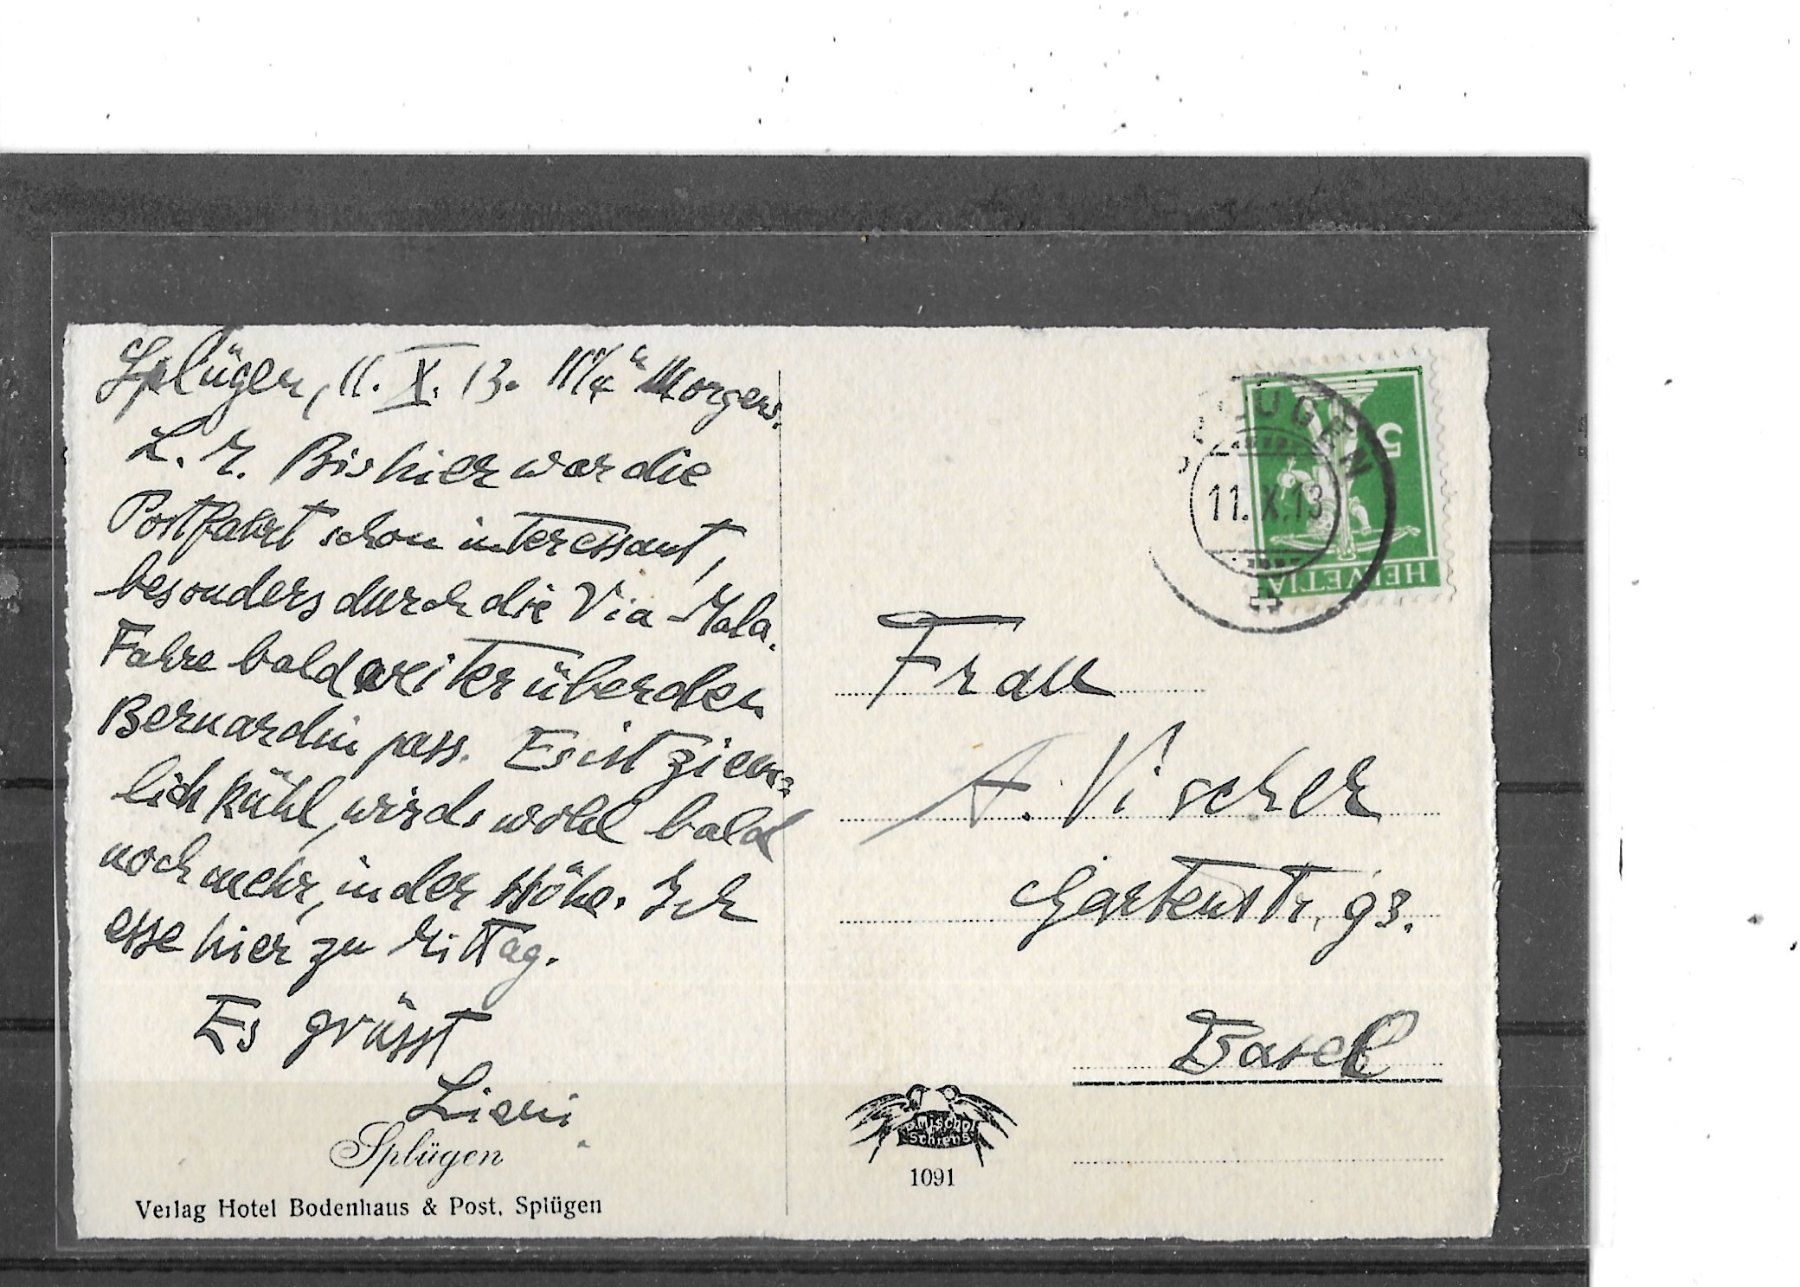 Splügen, 11. X. 13. 11¼ u Morgens.
L. M. Bis hier war die
Postfahrt schon interessant,
besonders durch die Via Mala.
Fahre bald weiter über den
Bernardin pass. Es ist ziem-
lich kühl, wird's wohl bald
noch mehr, in der Höhe. Ich
esse hier zu Mittag.
Es grüsst
Splügen
Verlag Hotel Bodenhaus & Post, Splügen
SPLÜGEN
11.X.13
5
HELVETIA
Frau
A. Vischer
Gartenstr. 93.
Basel
Mischol
Schiers
1091